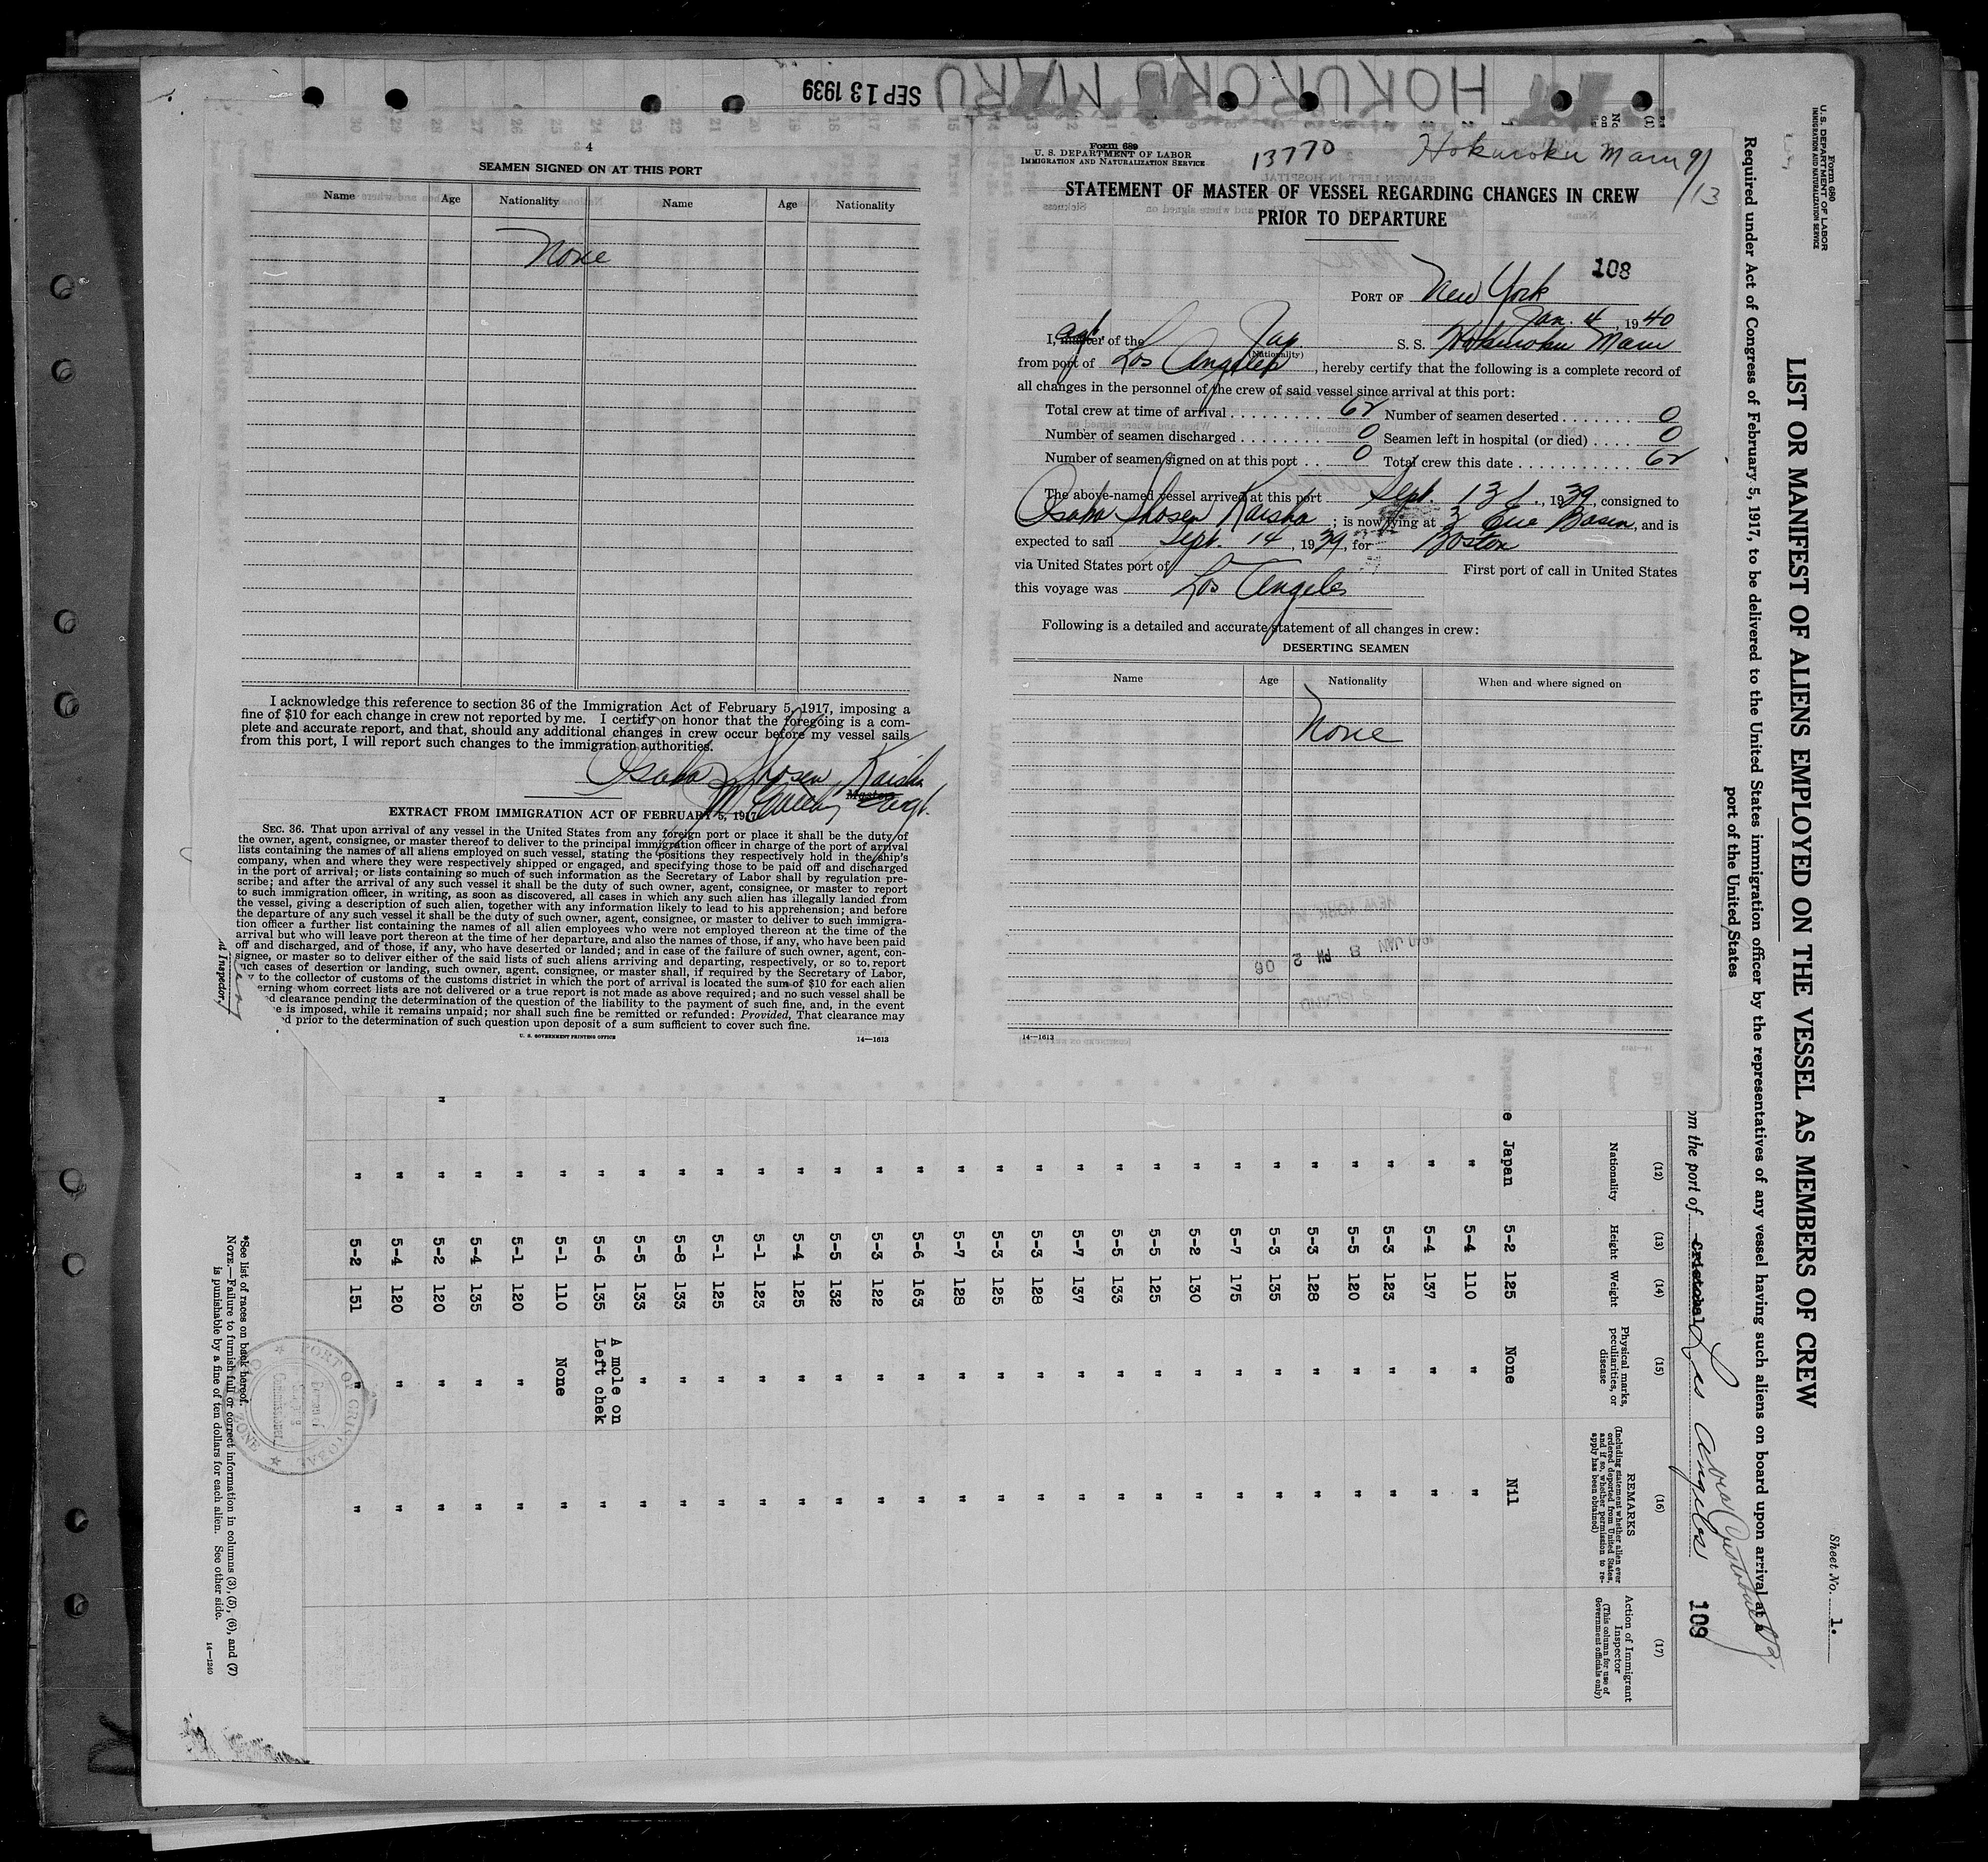 HOKUROKU MARU
SEP 13 1939
4
SEAMEN SIGNED ON AT THIS PORT
Name Age Nationality Name Age Nationality
None
I acknowledge this reference to section 36 of the Immigration Act of February 5, 1917, imposing a
fine of $10 for each change in crew not reported by me. I certify on honor that the foregoing is a com-
plete and accurate report, and that, should any additional changes in crew occur before my vessel sails
from this port, I will report such changes to the immigration authorities.
Osaka Shosen Kaisha
Master agt.
EXTRACT FROM IMMIGRATION ACT OF FEBRUARY 5, 1917
SEC. 36. That upon arrival of any vessel in the United States from any foreign port or place it shall be the duty of
the owner, agent, consignee, or master thereof to deliver to the principal immigration officer in charge of the port of arrival
lists containing the names of all aliens employed on such vessel, stating the positions they respectively hold in the ship's
company, when and where they were respectively shipped or engaged, and specifying those to be paid off and discharged
in the port of arrival; or lists containing so much of such information as the Secretary of Labor shall by regulation pre-
scribe; and after the arrival of any such vessel it shall be the duty of such owner, agent, consignee, or master to report
to such immigration officer, in writing, as soon as discovered, all cases in which any such alien has illegally landed from
the vessel, giving a description of such alien, together with any information likely to lead to his apprehension; and before
the departure of any such vessel it shall be the duty of such owner, agent, consignee, or master to deliver to such immigra-
tion officer a further list containing the names of all alien employees who were not employed thereon at the time of the
arrival but who will leave port thereon at the time of her departure, and also the names of those, if any, who have been paid
off and discharged, and of those, if any, who have deserted or landed; and in case of the failure of such owner, agent, con-
signee, or master so to deliver either of the said lists of such aliens arriving and departing, respectively, or so to report
such cases of desertion or landing, such owner, agent, consignee, or master shall, if required by the Secretary of Labor,
to the collector of customs of the customs district in which the port of arrival is located the sum of $10 for each alien
erning whom correct lists are not delivered or a true report is not made as above required; and no such vessel shall be
d clearance pending the determination of the question of the liability to the payment of such fine, and, in the event
e is imposed, while it remains unpaid; nor shall such fine be remitted or refunded: Provided, That clearance may
d prior to the determination of such question upon deposit of a sum sufficient to cover such fine.
U. S. GOVERNMENT PRINTING OFFICE 14—1613
Form 689
U. S. DEPARTMENT OF LABOR
IMMIGRATION AND NATURALIZATION SERVICE
13770
Hokuroku Maru 9/13
STATEMENT OF MASTER OF VESSEL REGARDING CHANGES IN CREW
PRIOR TO DEPARTURE
108
PORT OF New York
Jan. 4, 1940
I, master agt. of the Jap. S. S. Hokuroku Maru
(Nationality)
from port of Los Angeles, hereby certify that the following is a complete record of
all changes in the personnel of the crew of said vessel since arrival at this port:
Total crew at time of arrival 62 Number of seamen deserted 0
Number of seamen discharged 0 Seamen left in hospital (or died) 0
Number of seamen signed on at this port 0 Total crew this date 62
The above-named vessel arrived at this port Sept. 13, 1939, consigned to
Osaka Shosen Kaisha; is now lying at 3 Erie Basin, and is
expected to sail Sept. 14, 1939, for Boston
via United States port of First port of call in United States
this voyage was Los Angeles
Following is a detailed and accurate statement of all changes in crew:
DESERTING SEAMEN
Name Age Nationality When and where signed on
None
14—1613
Form 680
U. S. DEPARTMENT OF LABOR
IMMIGRATION AND NATURALIZATION SERVICE
Sheet No. 1.
LIST OR MANIFEST OF ALIENS EMPLOYED ON THE VESSEL AS MEMBERS OF CREW
Required under Act of Congress of February 5, 1917, to be delivered to the United States immigration officer by the representatives of any vessel having such aliens on board upon arrival at a
port of the United States
om the port of Cristobal Los Angeles via Cristobal
109
(12) (13) (14) (15) (16) (17)
Nationality Height Weight Physical marks, peculiarities, or disease
REMARKS (Including statement whether alien ever ordered deported from United States, and if so, whether permission to re-apply has been obtained)
Action of Immigrant Inspector (This column for use of Government officials only)
e Japan 5-2 125 None Nil
" 5-4 110 " "
" 5-4 137 " "
" 5-3 123 " "
" 5-5 120 " "
" 5-3 128 " "
" 5-3 135 " "
" 5-7 175 " "
" 5-2 130 " "
" 5-5 125 " "
" 5-5 133 " "
" 5-7 137 " "
" 5-3 128 " "
" 5-3 125 " "
" 5-7 128 " "
" 5-6 163 " "
" 5-3 122 " "
" 5-5 132 " "
" 5-4 125 " "
" 5-1 123 " "
" 5-1 125 " "
" 5-8 133 " "
" 5-5 133 " "
" 5-6 135 A mole on Left chek "
" 5-1 110 None "
" 5-1 120 " "
" 5-4 135 " "
" 5-2 120 " "
" 5-4 120 " "
" 5-2 151 " "
*See list of races on back hereof.
NOTE.—Failure to furnish full or correct information in columns (3), (5), (6), and (7)
is punishable by a fine of ten dollars for each alien. See other side.
14—1240
nt Inspector.
PORT OF CRISTOBAL
ZONE
Commissioner